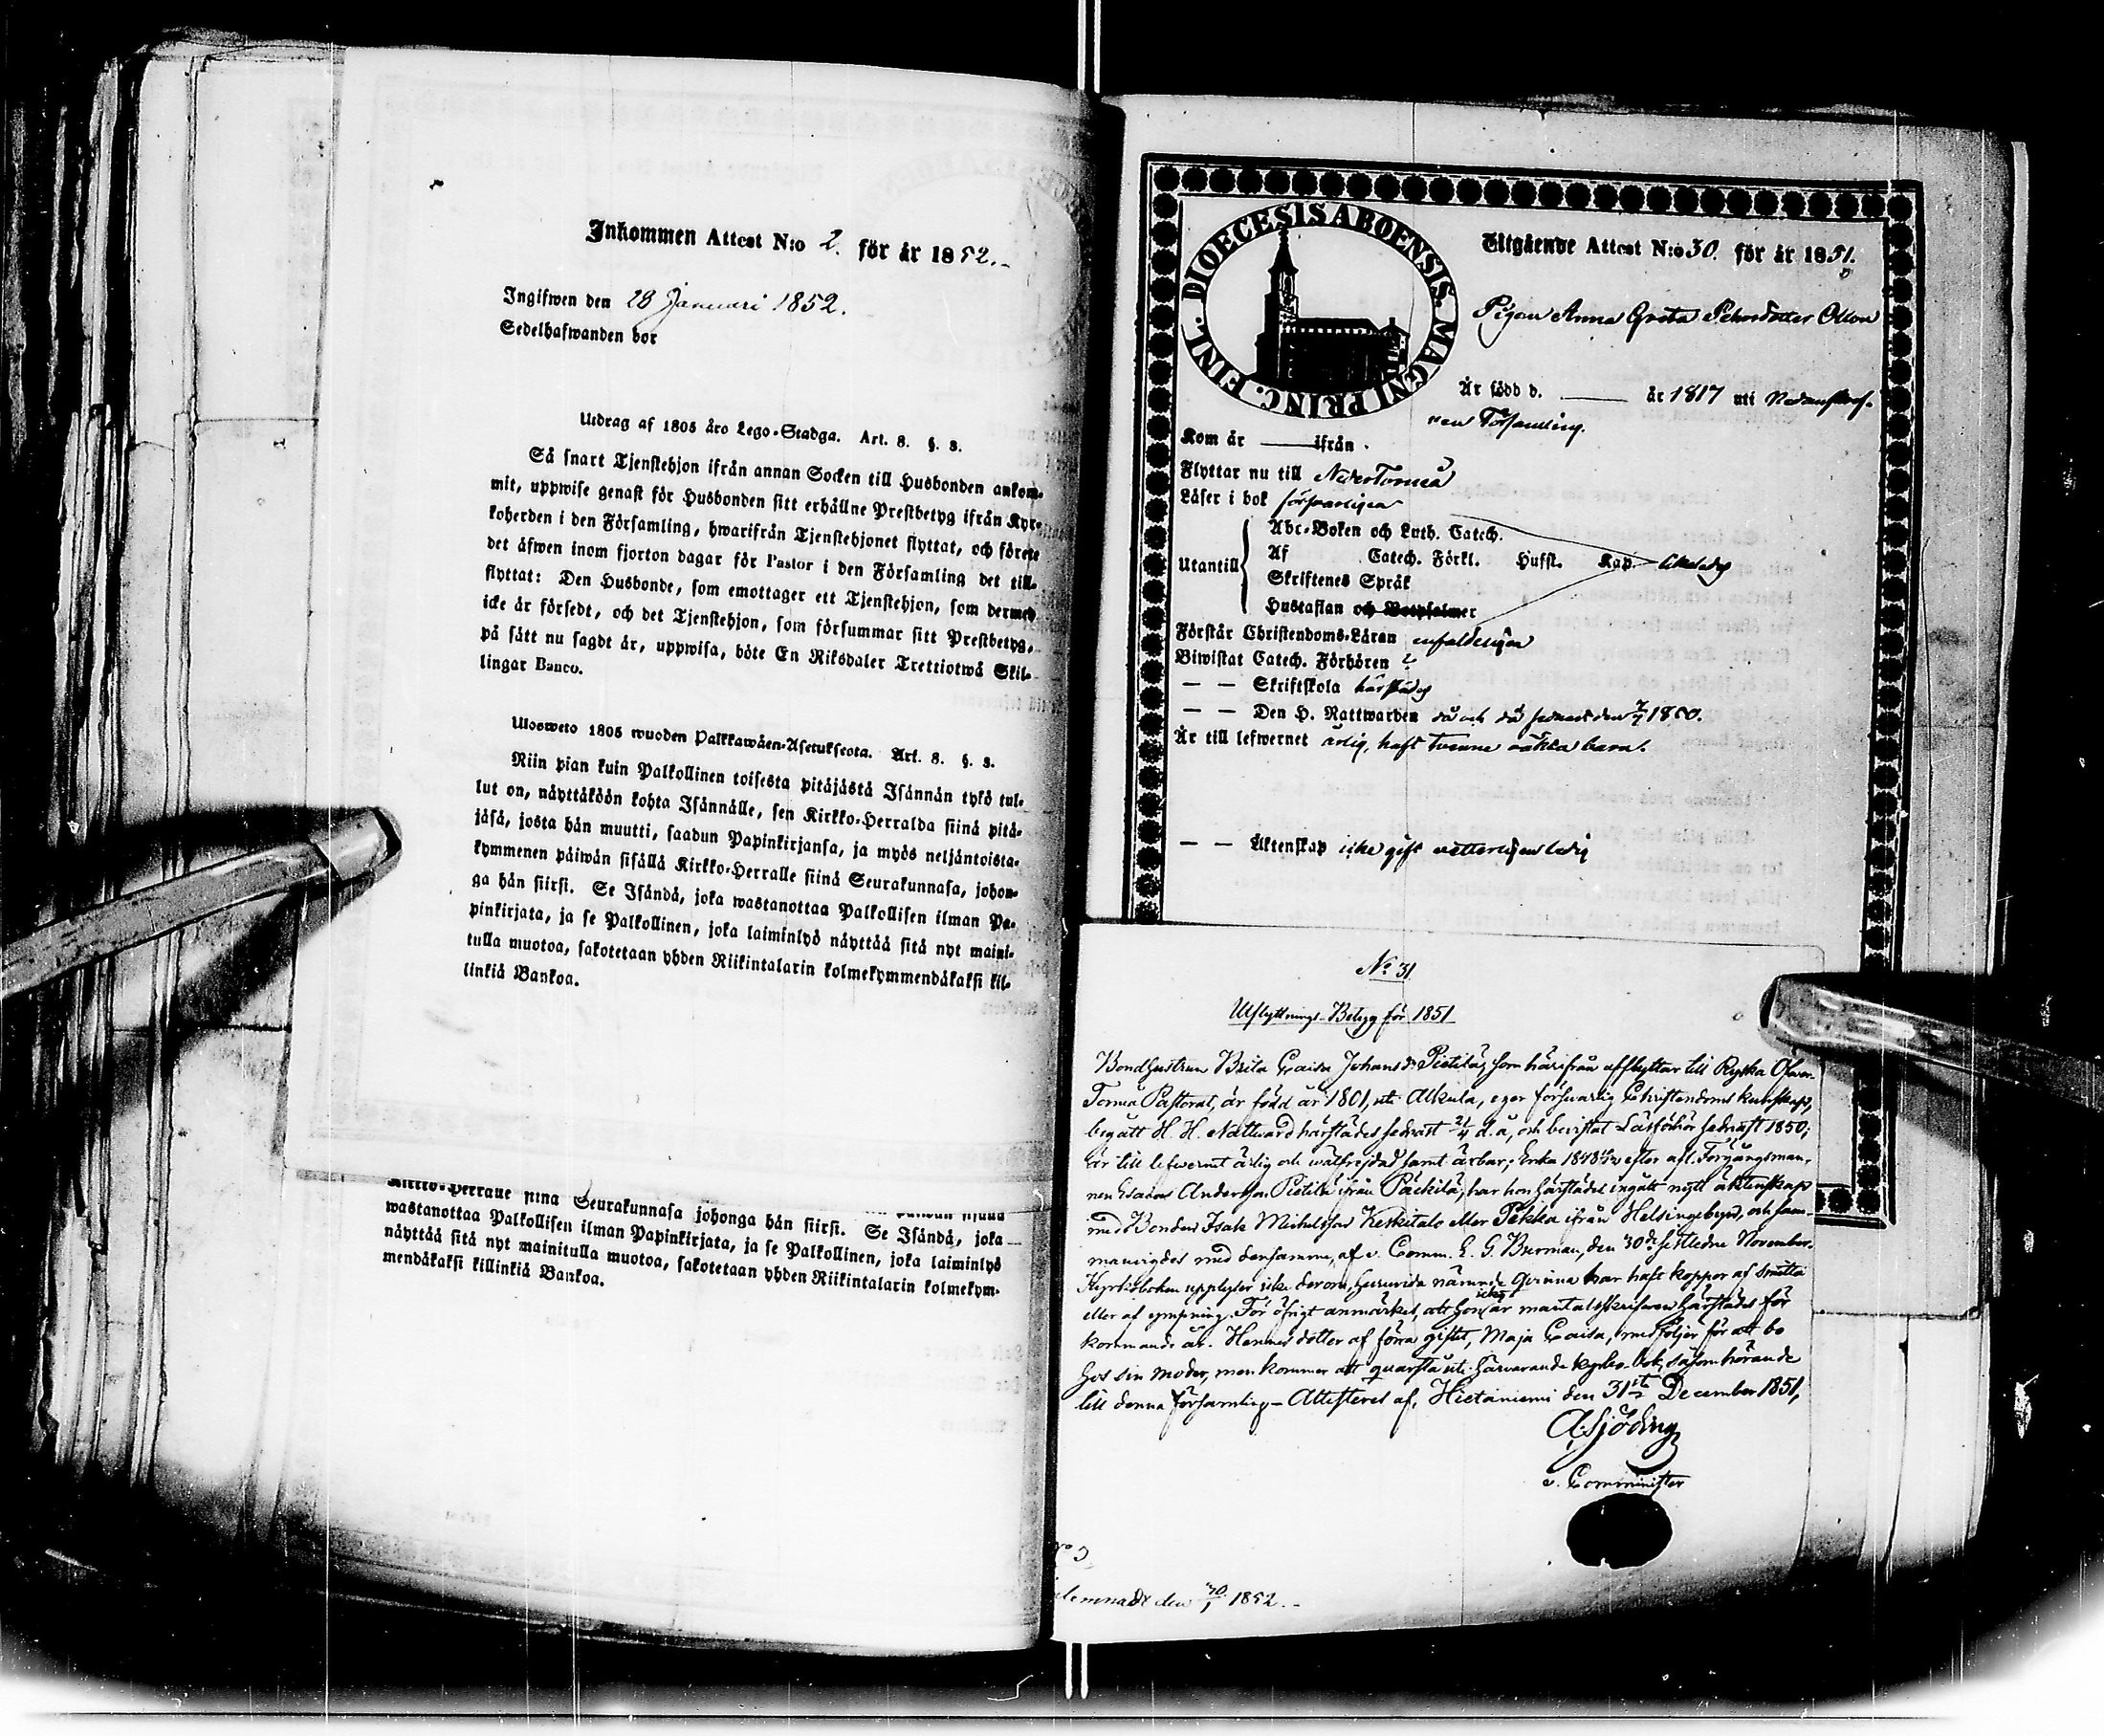 Inkommen Attest N:o 2. för år 1852.
Ingifwen den 28 Januari 1852.
Sedelhafwanden bor
Utdrag af 1805 års Lego-Stadga. Art. 8. §. 3.
Så snart Tjenstehjon ifrån annan Socken till Husbonden ankom-
mit, uppwise genast för Husbonden sitt erhållne Prestbetyg ifrån Kyr-
koherden i den Församling, hwarifrån Tjenstehjonet flyttat, och förete
det äfwen inom fjorton dagar för Pastor i den Församling det till-
flyttat: Den Husbonde, som emottager ett Tjenstehjon, som dermed
icke är försedt, och det Tjenstehjon, som försummar sitt Prestbetyg,
på sätt nu sagdt är, uppwisa, böte En Riksdaler Trettiotwå Skil-
lingar Banco.
Ulosweto 1805 wuoden Palkkawäen-Asetuksesta. Art. 8. §. 3.
Niin pian kuin Palkollinen toisesta pitäjästä Isännän tykö tul-
lut on, näyttäköön kohta Isännälle, sen Kirkko-Herralda siinä pitä-
jäsä, josta hän muutti, saadun Papinkirjansa, ja myös neljäntoista-
kymmenen päiwän sisällä Kirkko-Herralle siinä Seurakunnasa, johon-
ga hän siirsi. Se Isändä, joka wastanottaa Palkollisen ilman Pa-
pinkirjata, ja se Palkollinen, joka laiminlyö näyttää sitä nyt maini-
tulla muotoa, sakotetaan yhden Riikintalarin kolmekymmendäkaksi kil-
linkiä Bankoa.
Kirkko-Herralle siinä Seurakunnasa johonga hän siirsi. Se Isändä, joka
wastanottaa Palkollisen ilman Papinkirjata, ja se Palkollinen, joka laiminlyö
näyttää sitä nyt mainitulla muotoa, sakotetaan yhden Riikintalarin kolmekym-
mendäkaksi killinkiä Bankoa.
DIOECESIS ABOENSIS MAGNI PRINC. FINL.
Utgående Attest N:o 30. för år 1851.
Pigan Anna Greta Pehrsdotter
Är född d. år 1817 uti
Församling.
Kom år ifrån
Flyttar nu till Neder Torneå
Läser i bok försvarligen
Utantill
Abc-Boken och Luth. Catech.
Af Catech. Förkl. Husst. Kap.
Skriftenes Språk
Hustaflan och Botpsalmer
Förstår Christendoms-Läran enfaldeligen
Biwistat Catech. Förhören
— — Skriftskola härstädes
— — Den H. Nattwarden då och då sednast den
Är till lefwernet ärlig, haft tvenne oäkta barn.
— — Äktenskap icke gift veterligen ledig
No 31
Utflyttnings-Betyg för 1851
Bondhustrun Brita Caisa Johansdr Pietilä, som härifrån afflyttar till Ryska Öfver-
Torneå Pastorat, är född år 1801, uti Alkula, eger försvarlig Christendoms kunskap,
begått H. H. Nattvard härstädes sednast 21/4 d. å, och bevistat Läsförhör sednast 1850;
är till lefwernet ärlig och wälfrejdad samt ärbar; Enka efter afl. Förgångsman-
nen Esaias Andersson Pietilä ifrån Päckilä, har hon härstädes ingått nytt äktenskap
med Bonden Isak Michelsson Keskitalo eller Pekka ifrån Helsingebyn, och sam-
manvigdes med densamme, af v. Comm. E. G. Burman, den 30de sistledne November.
Kyrkoboken upplyser icke derom, huruvida nämnde qvinna har haft koppor af smitta
eller af ympning. För öfrigt anmärkes, att hon icke är mantalsskrifven härstädes för
kommande år. Hennes dotter af förra giftet, Maja Caisa, medföljer för att bo
hos sin moder, men kommer att quarstå uti härvarande kyrko-bok, såsom hörande
till denna församling – Attesteras af, Hietaniemi den 31st December 1851,
A. Sjöding
v. Comminister
No 3
den 30/1 1852.